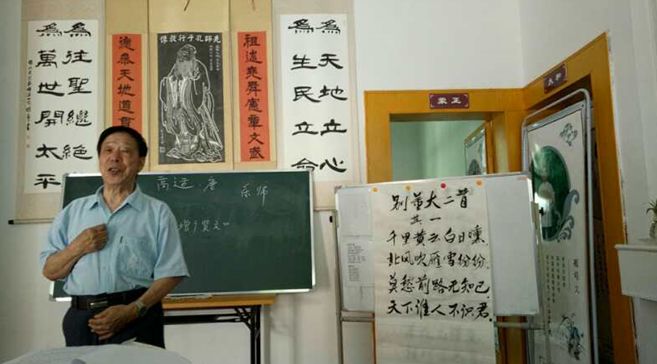 為天地立心
為生民立命
祖述堯舜憲章文武
先師孔子行教像
德參天地道
為往聖繼絕
為萬世開太平
高适·唐
增广贤文
别董大二首
其一
千里黄云白日曛
北风吹雁雪纷纷
莫愁前路无知己
天下谁人不识君
正蒙